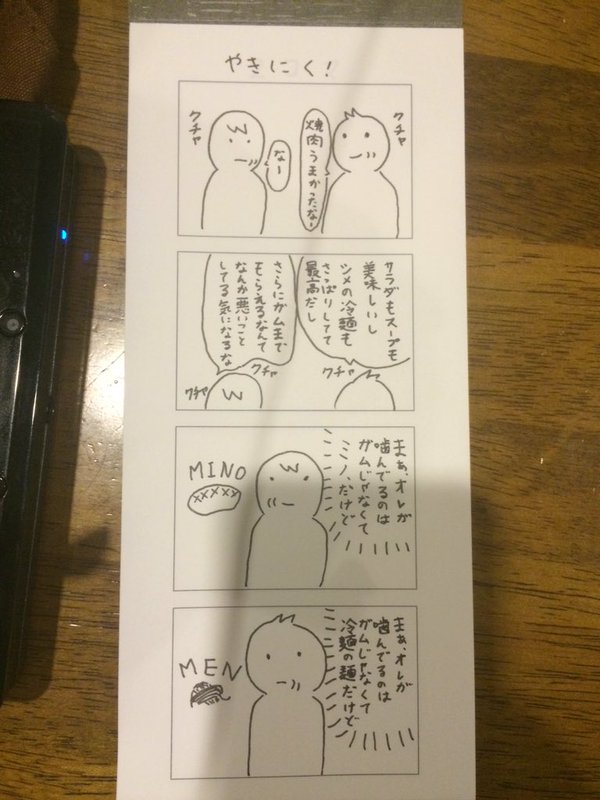 やきにく!
クチャ
焼肉うまかったなー
なー
クチャ
サラダもスープも
美味しいし
シメの冷麺も
さっぱりしてて
最高だし
クチャ
さらにガムまで
もらえるなんて
なんか悪いこと
してる気になるな
クチャ
クチャ
まぁ、オレが
噛んでるのは
ガムじゃなくて
ミノ、だけど
MINO
まぁ、オレが
噛んでるのは
ガムじゃなくて
冷麺の麺だけど
MEN